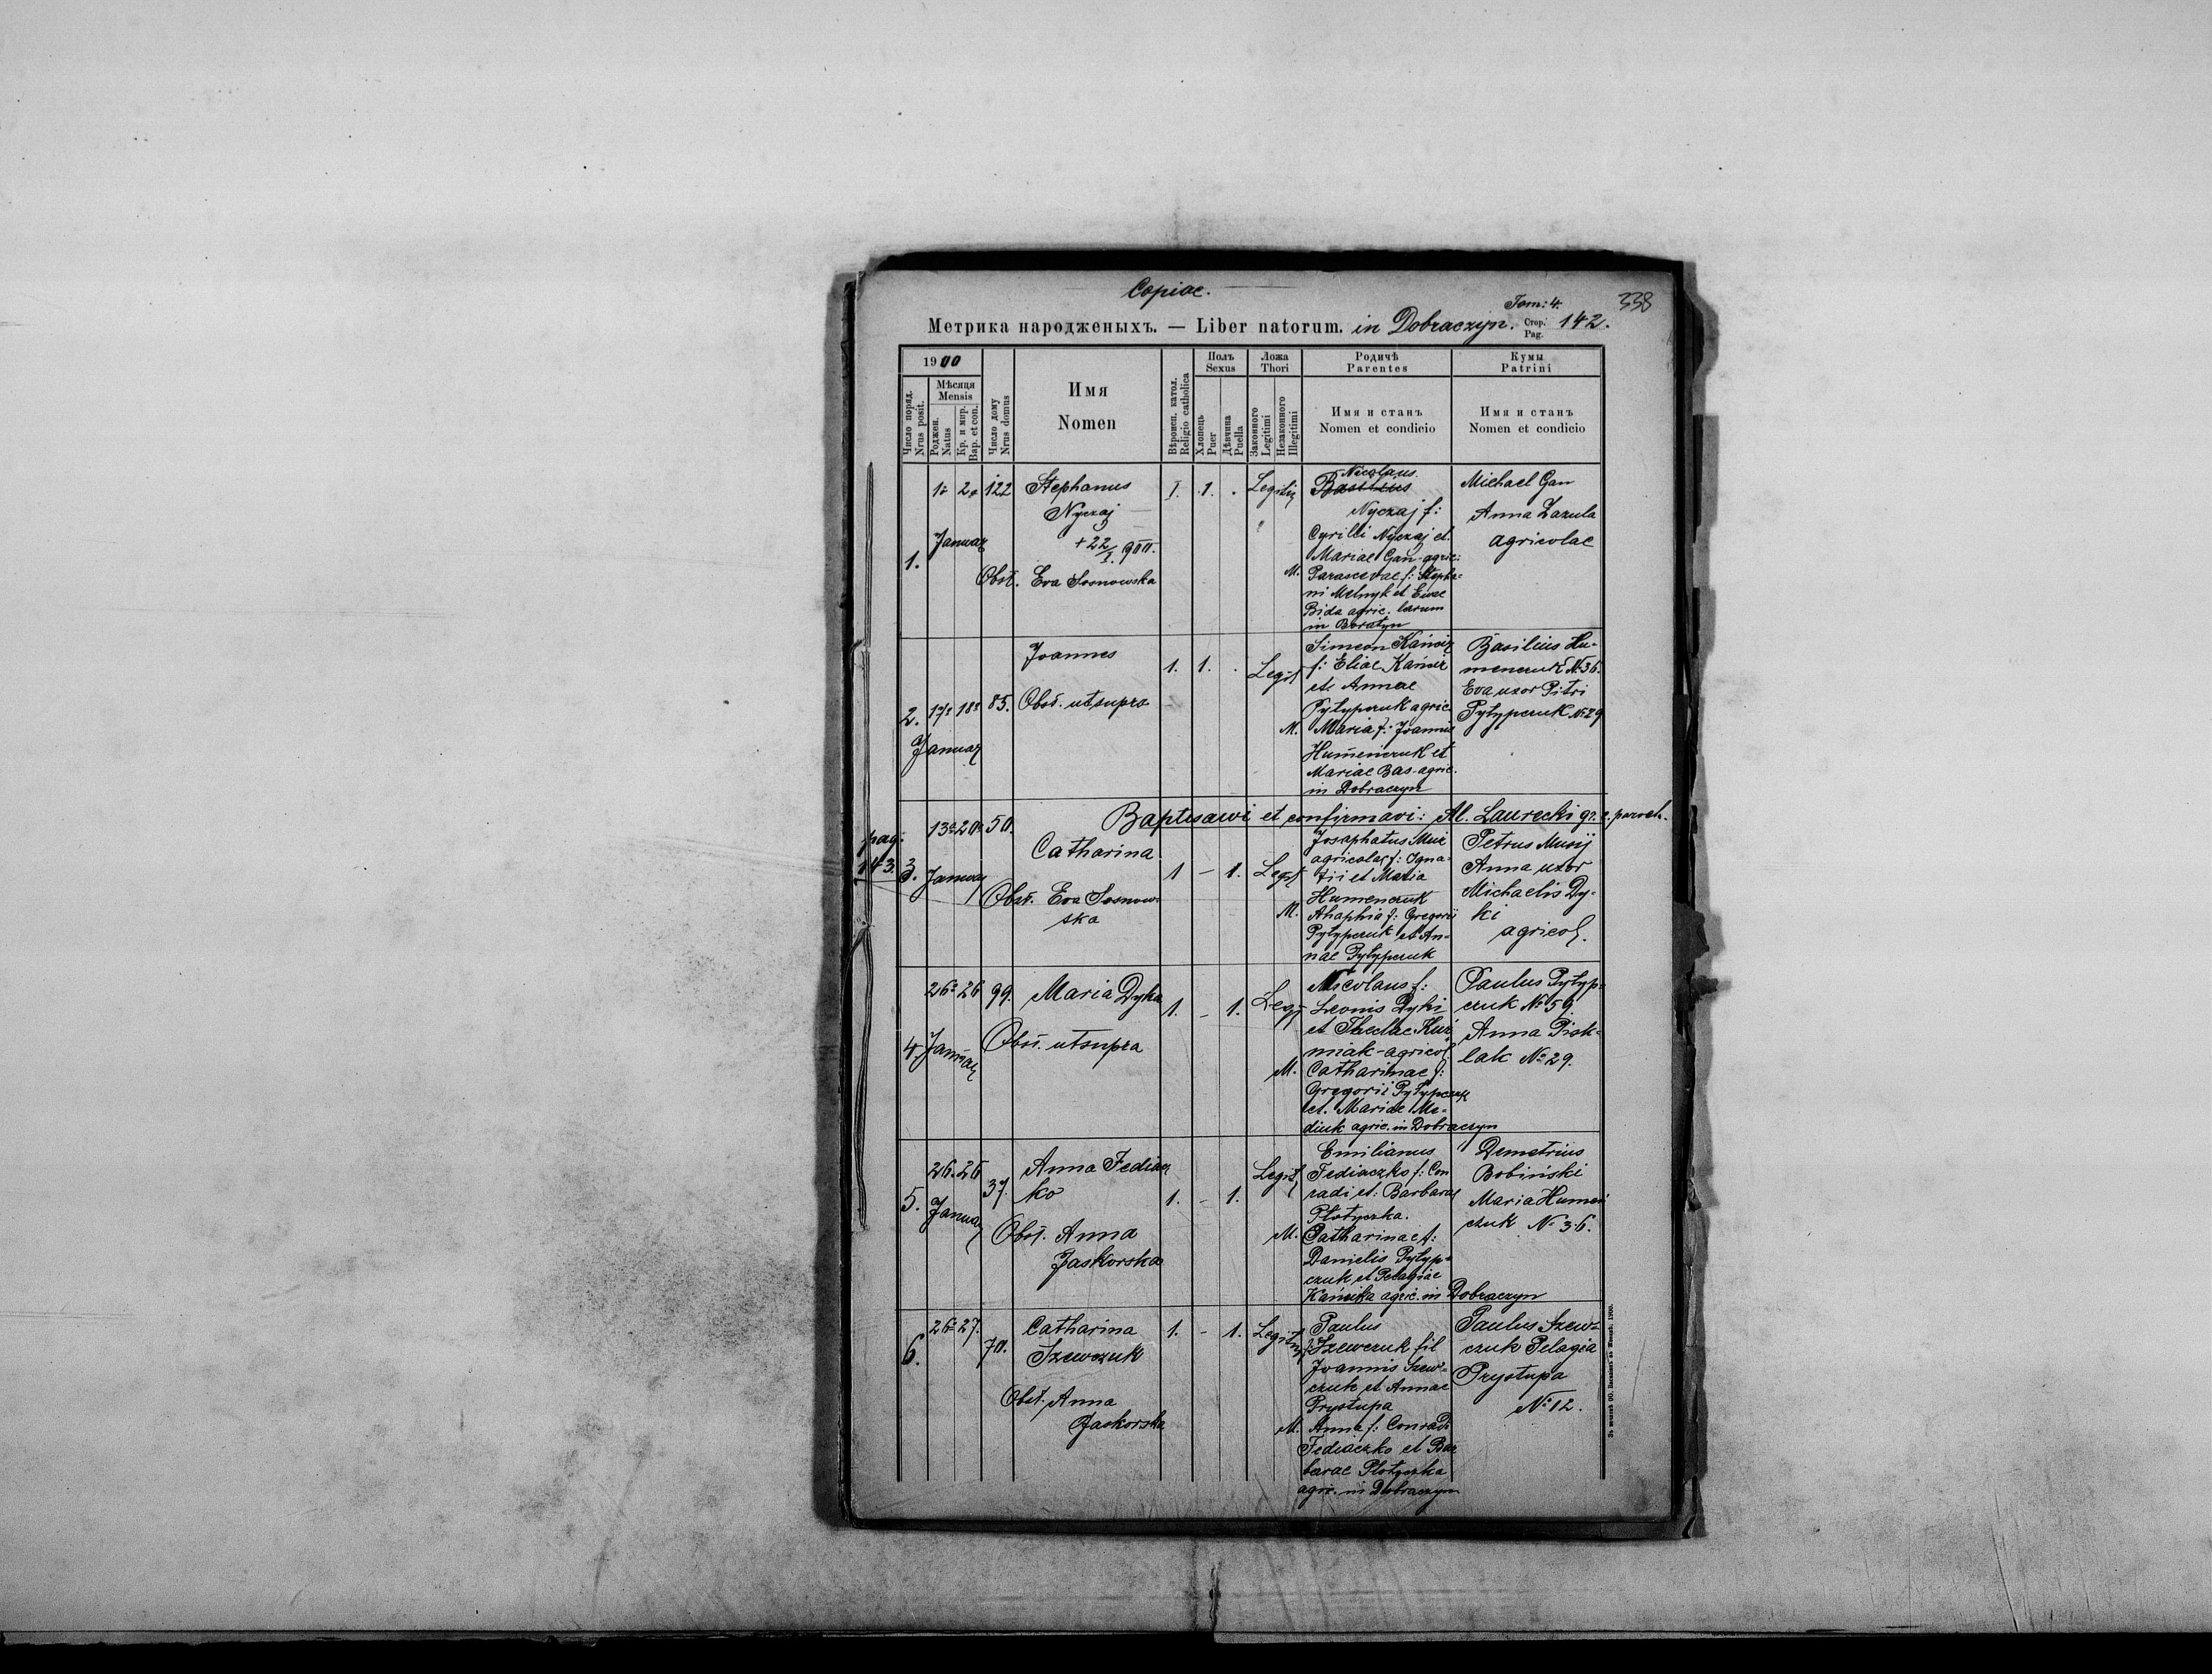 Copiae.
Tom: 4.
338
Метрика народженыхъ. — Liber natorum. in Dobraczyn. Стор. Pag. 142.
1900
Число поряд. Nrus posit.
Мѣсяця
Mensis
Роджен. Natus
Кр. и мир. Bap. et con.
Число дому Nrus domus
Имя
Nomen
Вѣроисп. катол. Religio catholica
Полъ
Sexus
Хлопець Puer
Дѣвчина Puella
Ложа
Thori
Законного Legitimi
Незаконного Illegitimi
Родичѣ
Parentes
Имя и станъ
Nomen et condicio
Кумы
Patrini
Имя и станъ
Nomen et condicio
1.
1 2 122
Januar
Stephanus
Nyczaj
+ 22/I. 900.
Obst. Eva Sosnowska
I. 1. .
Legiti
Nicolaus
Basilius
Nyczaj f:
Cyrilli Nyczaj et
Mariae Gan-agric:
M. Parascevae f: Stepha-
ni Melnyk et Evae
Bida agric. larum
in Boratyn
Michael Gan
Anna Zazula
agricolae
2. 17 18 83.
Januar
Joannes
Obst. ut supra
1. 1. .
Legit
Simeon Kańcir
f: Eliae Kańcir
et Annae
Pytypczuk agric.
M. Maria f: Joannis
Humeńczuk et
Mariae Bas-agric.
in Dobraczyn
Basilius Hu-
menczuk N 36.
Eva uxor Petri
Pytypczuk N 29
Baptisavi et confirmavi: Al. Laurecki gr. c. paroch.
pag:
143.
3.
13 20 50.
Januar
Catharina
Obst. Eva Sosnow-
ska
1 - 1.
Legit
Josaphatus Musi
agricolae f: Igna-
tii et Maria
Humenczuk
M. Ahaphia f: Gregorii
Pytypczuk et An-
nae Pytypczuk
Petrus Musij
Anna uxor
Michaelis Dy-
ki
agricol.
4.
26 26 99.
Januar
Maria Dyka
Obst. ut supra
1. - 1.
Legit
Nicolaus f:
Leonis Dyki
et Theclae Kuź
miak-agricol
M. Catharinae f:
Gregorii Pytypczuk
et. Mariae Me-
diuk agric. in Dobraczyn
Paulus Pytyp-
czuk N 59.
Anna Pisk-
lak No 29.
5.
26. 26 37.
Januar
Anna Fediacz
ko
Obst. Anna
Jaskorska
1. - 1.
Legit
Emilianus
Fediaczko f: Con
radi et: Barbarae
Plotyczka.
M. Catharinae f:
Danielis Pytyp-
czuk et Pelagiae
Kańcika agric. in Dobraczyn
Demetrius
Bobiński
Maria Humeń
czuk No 36.
6.
26 27. 70.
Catharina
Szewczuk
Obst. Anna
Jaskorska
1. - 1.
Legit
Paulus
Szewczuk fil
Joannis Szew-
czuk et Annae
Prystupa
M. Anna f: Conradi
Fediaczko et Bar
barae Plotyczka
agric. in Dobraczyn
Paulus Szew-
czuk Pelagia
Prystupa
No 12.